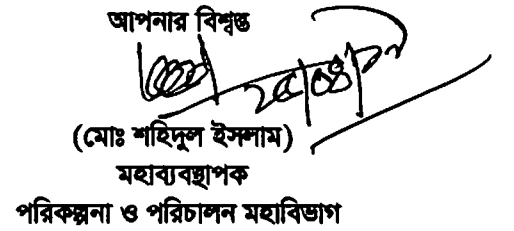 আপনার বিশ্বস্ত
(মোঃ শহিদুল ইসলাম)
মহাব্যবস্থাপক
পরিকল্পনা ও পরিচালন মহাবিভাগ